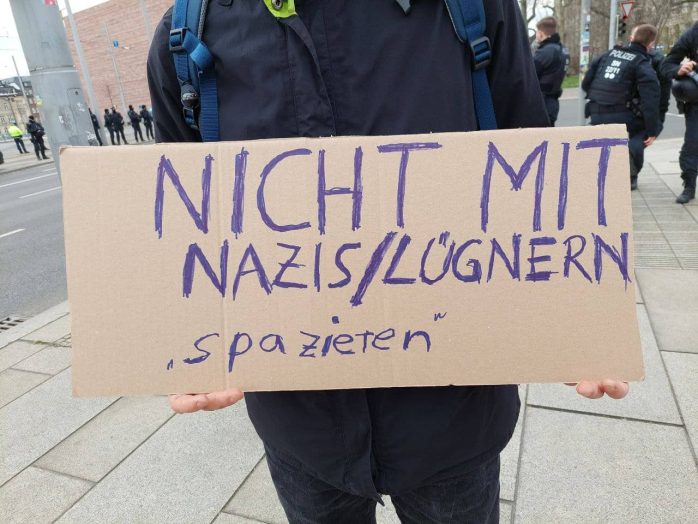 NICHT MIT
NAZIS/LÜGNERN
„spazieren"
POLIZEI